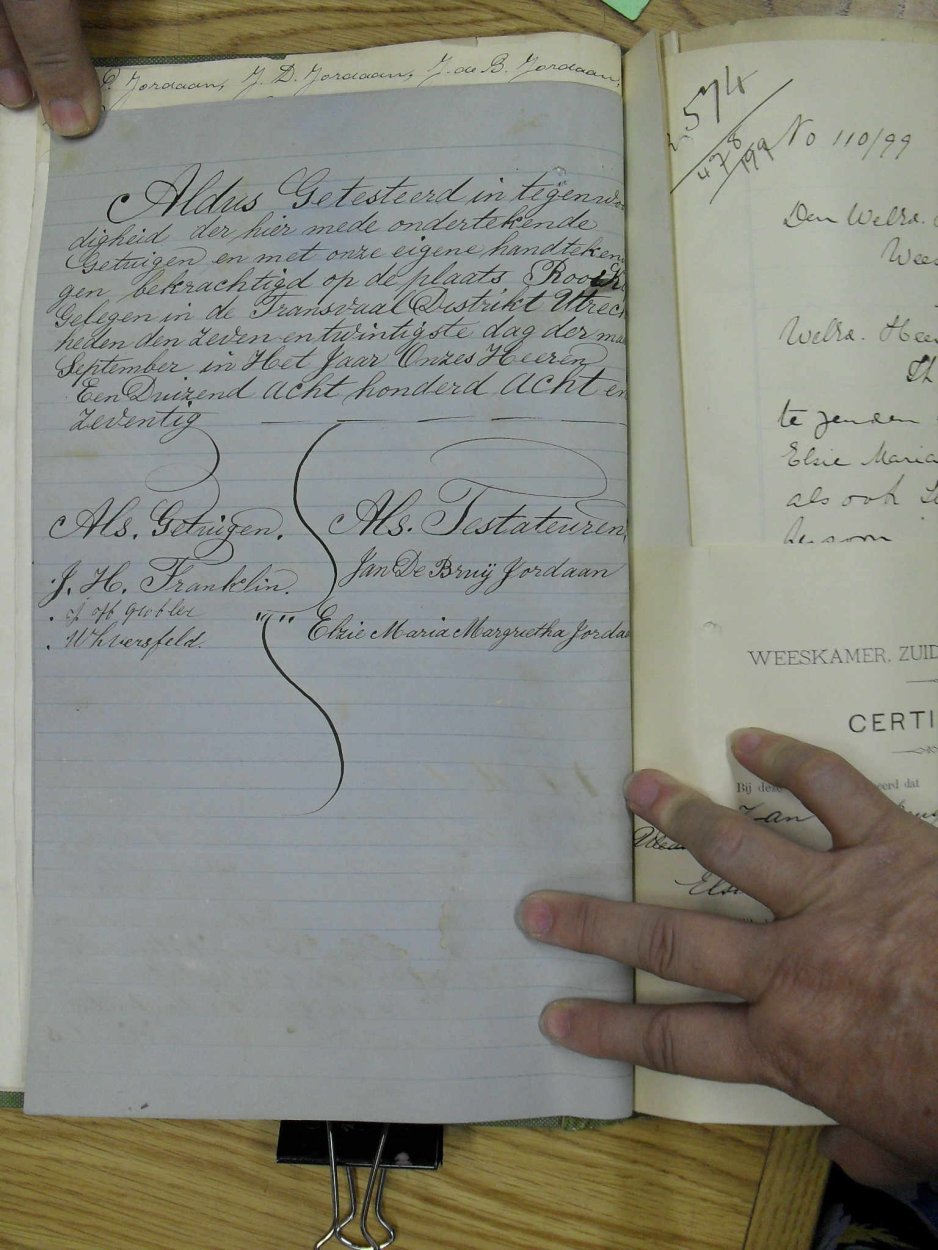 P. Jordaan, J. D. Jordaan, J. de B. Jordaan,
Aldus Getesteerd in tegenwo
digheid der hier mede ondertekende
Getuigen en met onze eigene handteken
gen bekrachtigd op de plaats
Gelegen in de Transvaal Distrikt Utrec
heden den zeven en twintigste dag der ma
September in Het Jaar Onzes Heeren
Een Duizend Acht honderd Acht en
zeventig
Als. Getuigen.
J. H. Franklin.
Als. Testateuren
Jan De Bruij Jordaan
Elzie Maria Margrietha Jorda
574
478/99
No 110/99
Den Welra.
Wees
Welra. Heer
te zenden
Elzie Maria
als ook
WEESKAMER, ZUID
CERTI
Bij deze
eerd dat
Jan